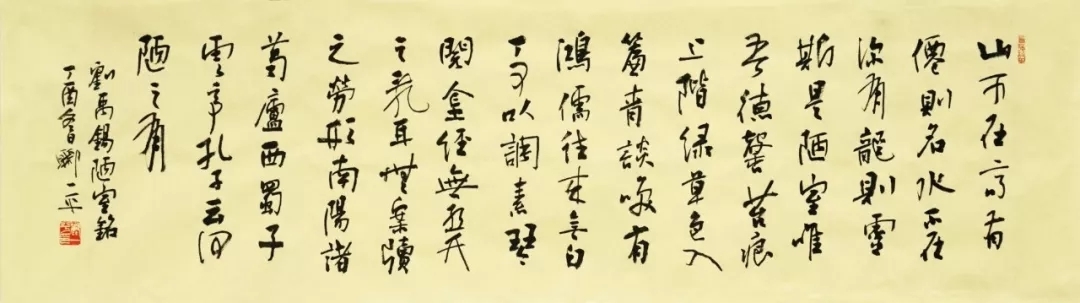 山不在高有
僊則名水不在
深有龍則靈
斯是陋室唯
吾德馨苔痕
上階緑草色入
簾青談咲有
鴻儒往来無白
丁可以調素琴
閱金經無絲竹
之亂耳無案牘
之勞形南陽諸
葛廬西蜀子
雲亭孔子云何
陋之有
劉禹錫陋室銘
丁酉春